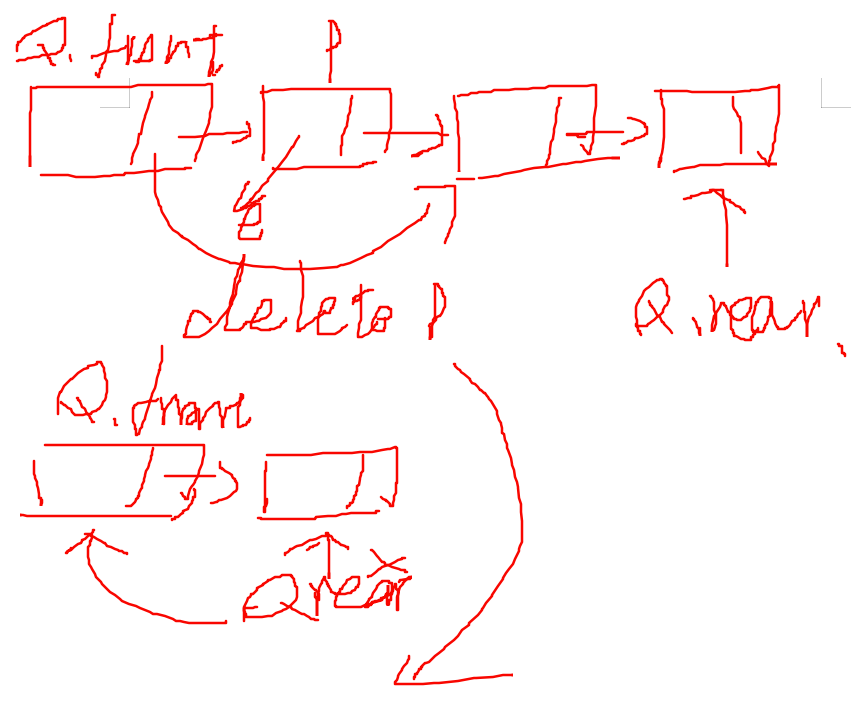 Q.front P
e
delete P
Q.rear.
Q.front
Qrear